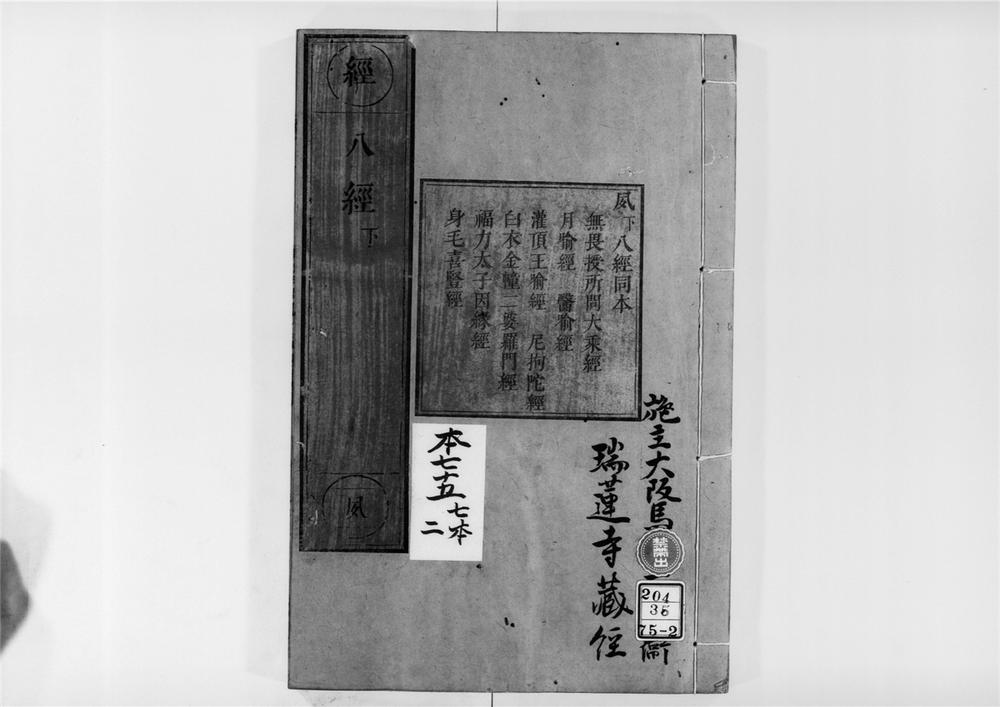 經
八經下
夙
夙下八經同本
無畏授所問大乘經
月喻經 醫喻經
灌頂王喻經 尼拘陀經
白衣金幢二婆羅門經
福力太子因緣經
身毛喜豎經
施主大阪馬
衞
瑞蓮寺藏經
本七十五
七本
二
禁出
204
36
75-2